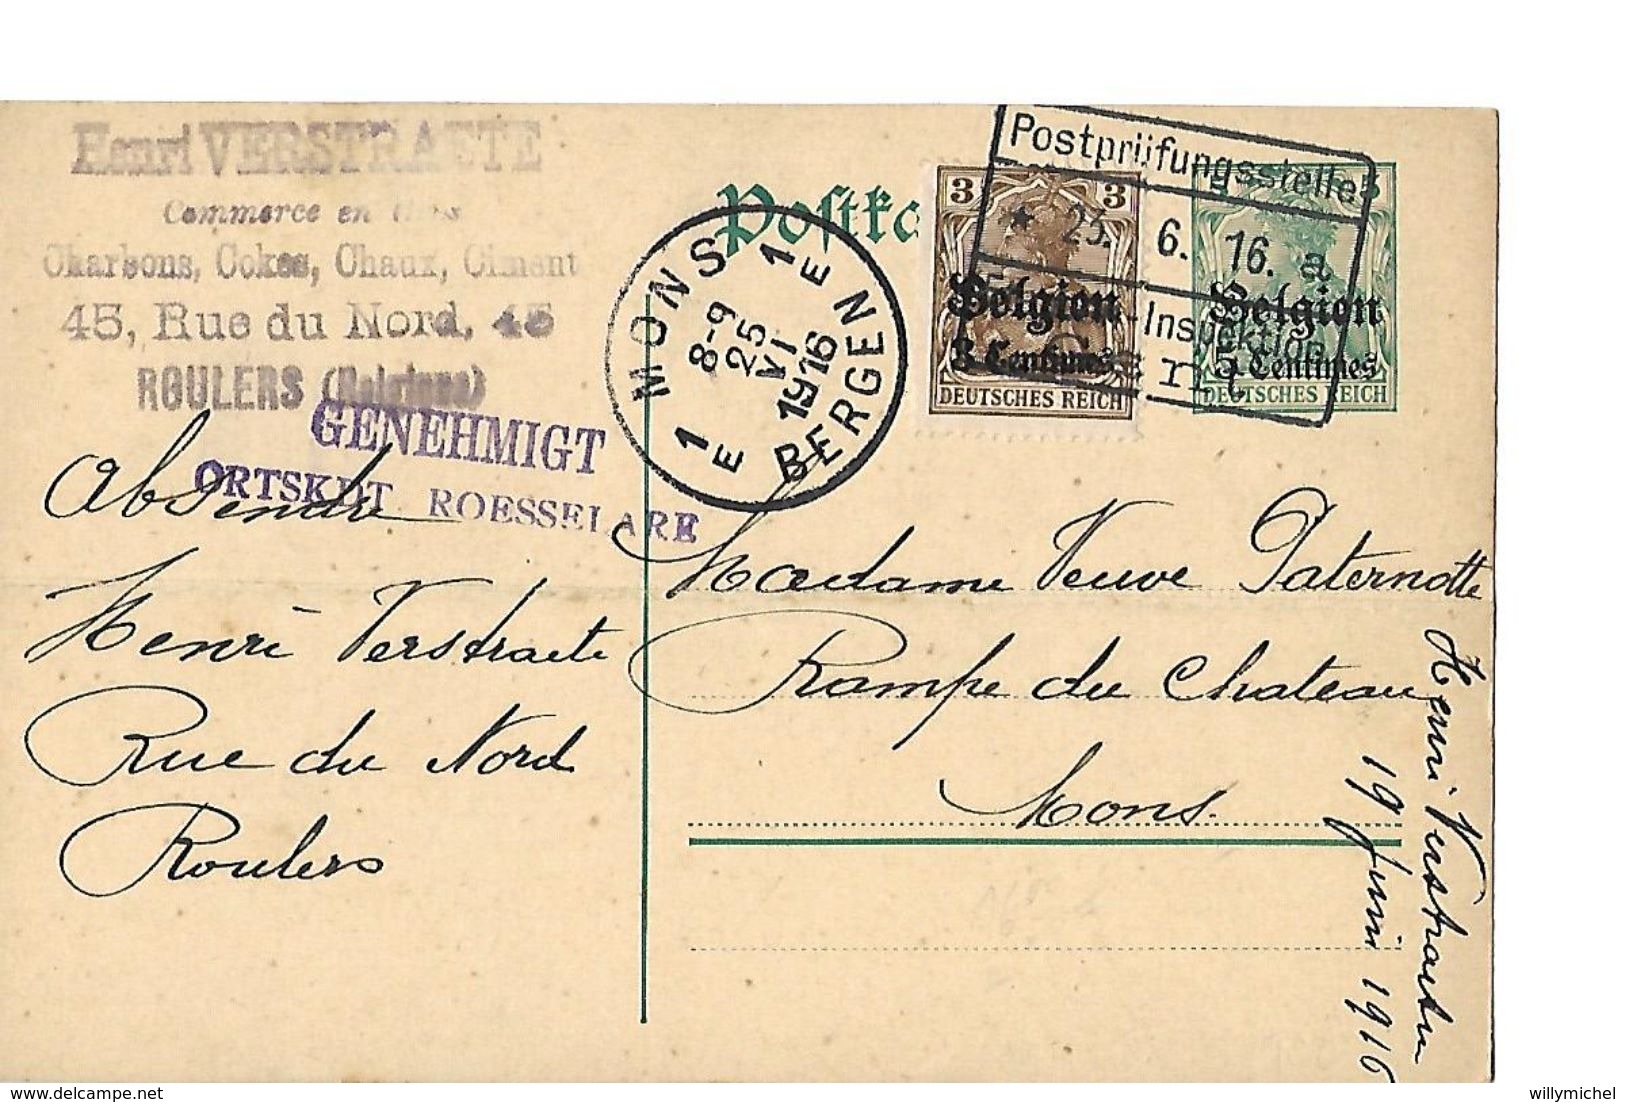 Henri VERSTRAETE
Commerce en Gros
Charbons, Cokes, Chaux, Ciment
45, Rue du Nord, 45
ROULERS (Belgique)
GENEHMIGT
ORTSKDT ROESSELARE
Postka
MONS 1 E
8-9
25
VI
1916
1 E BERGEN
3 3
Belgien
3 Centimes
DEUTSCHES REICH
5 5
Belgien
5 Centimes
DEUTSCHES REICH
Postprüfungsstelle
* 25. 6. 16. a
-Inspektion
Gent
Absendr
Henri Verstraete
Rue du Nord
Roulers
Madame Veuve Paternotte
Rampe du Chateau
Mons.
Henri Verstraete
19 juin 1916
delcampe.net
willymichel